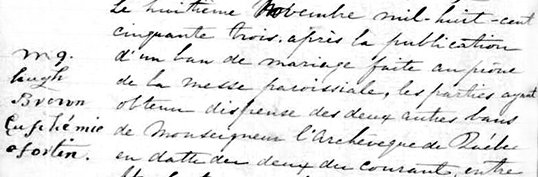 Le huitième Novembre mil-huit-cent
cinquante trois, après la publication
d'un ban de mariage faite au prône
de la messe paroissiale, les parties ayant
obtenu dispense des deux autres bans
de Monseigneur l'Archevêque de Québec
en datte du deux du courant, entre
mg.
laugh
Brown
Euphémie
Fortin.